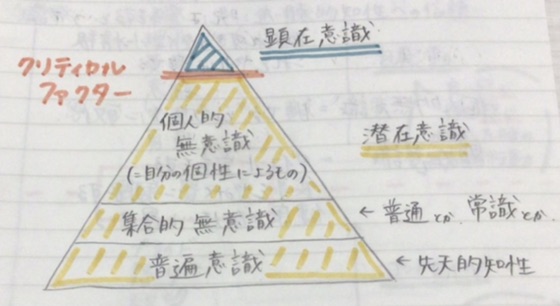 顕在意識
クリティカル
ファクター
個人的
無意識
(=自分の個性によるもの)
潜在意識
集合的無意識
← 普通とか、常識とか
普遍意識
← 先天的知性